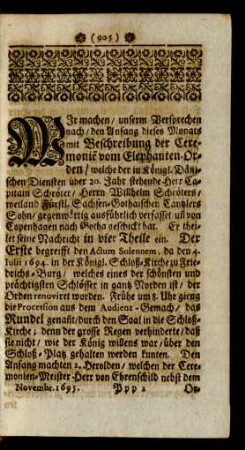 (905)
WIr machen / unserm Versprechen
nach / den Anfang dieses Monats
mit Beschreibung der Cere-
monië vom Elephanten-Or-
den / welche der in Königl. Däni-
schen Diensten über 20. Jahr stehende Herr Ca-
pitain Schröter / Herrn Willhelm Schröters /
weiland Fürstl. Sachsen-Gothaischen Cantzlers
Sohn / gegenwärtig ausführlich verfasset uñ von
Copenhagen nach Gotha geschickt hat. Er thei-
let seine Nachricht in vier Theile ein. Der
Erste begreifft den Actum Solennem, da den 4.
Julii 1694. in der Königl. Schloß-Kirche zu Frie-
drichs-Burg / welches eines der schönsten und
prächtigsten Schlösser in gantz Norden ist / der
Orden renoviret worden. Frühe um 8. Uhr gieng
die Procession aus dem Audienz-Gemach / das
Rundel genañt / durch den Saal in die Schloß-
Kirche; denn der grosse Regen verhinderte / daß
sie nicht / wie der König willens war / über den
Schloß-Platz gehalten werden kunten. Den
Anfang machten 2. Herolden / welchen der Cere-
monien-Meister Herr von Ehrenschild nebst dem
Novembr. 1695. Ppp 2 Or-